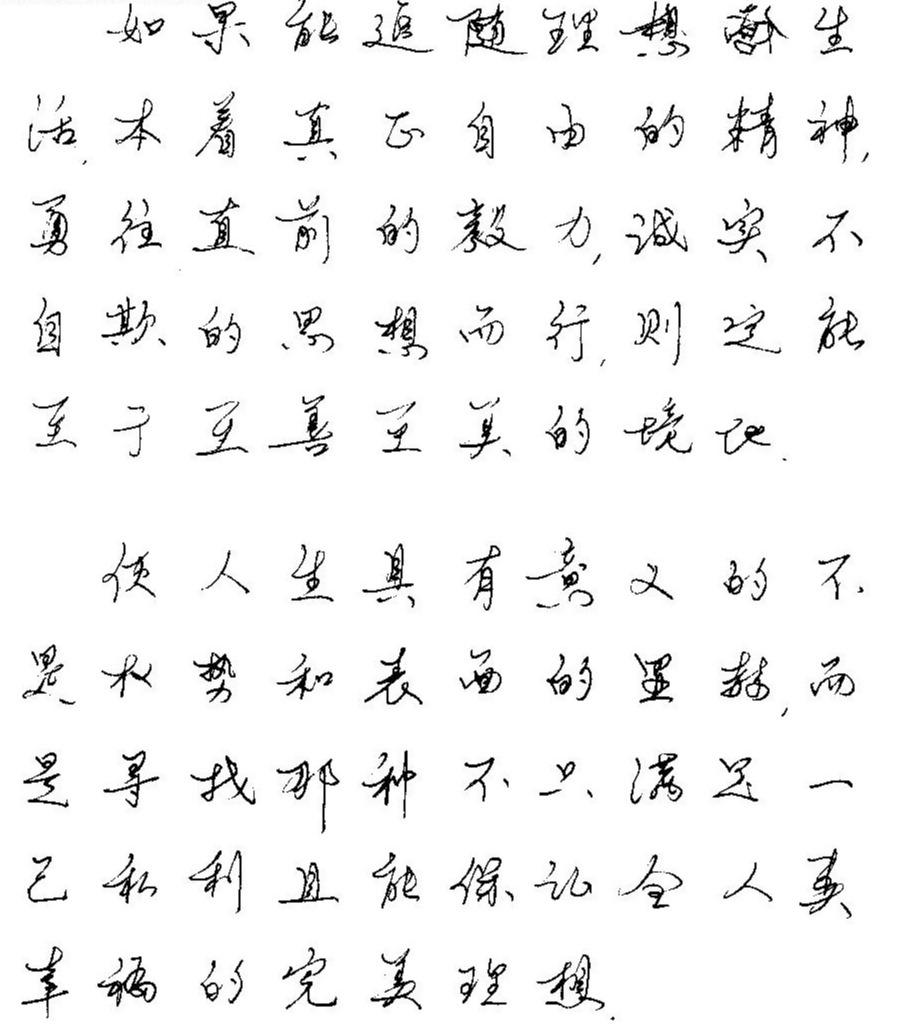 如果能追随理想而生
活,本着真正自由的精神,
勇往直前的毅力,诚实不
自欺的思想而行,则定能
至于至善至美的境地.
使人生具有意义的不
是权势和表面的显赫,而
是寻找那种不只满足一
己私利且能保证全人类
幸福的完美理想.